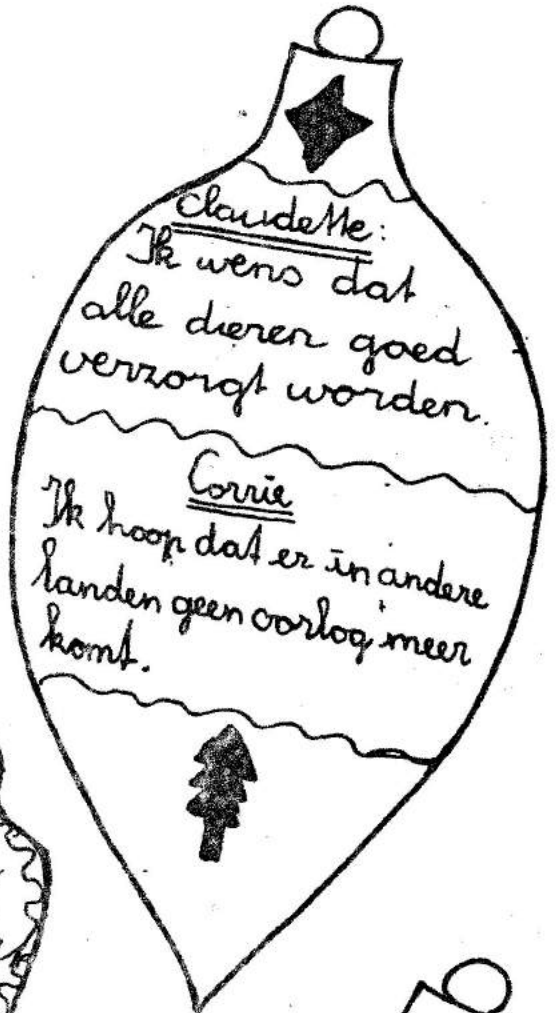 Claudette:
Ik wens dat
alle dieren goed
verzorgt worden.
Corrie
Ik hoop dat er in andere
landen geen oorlog meer
komt.